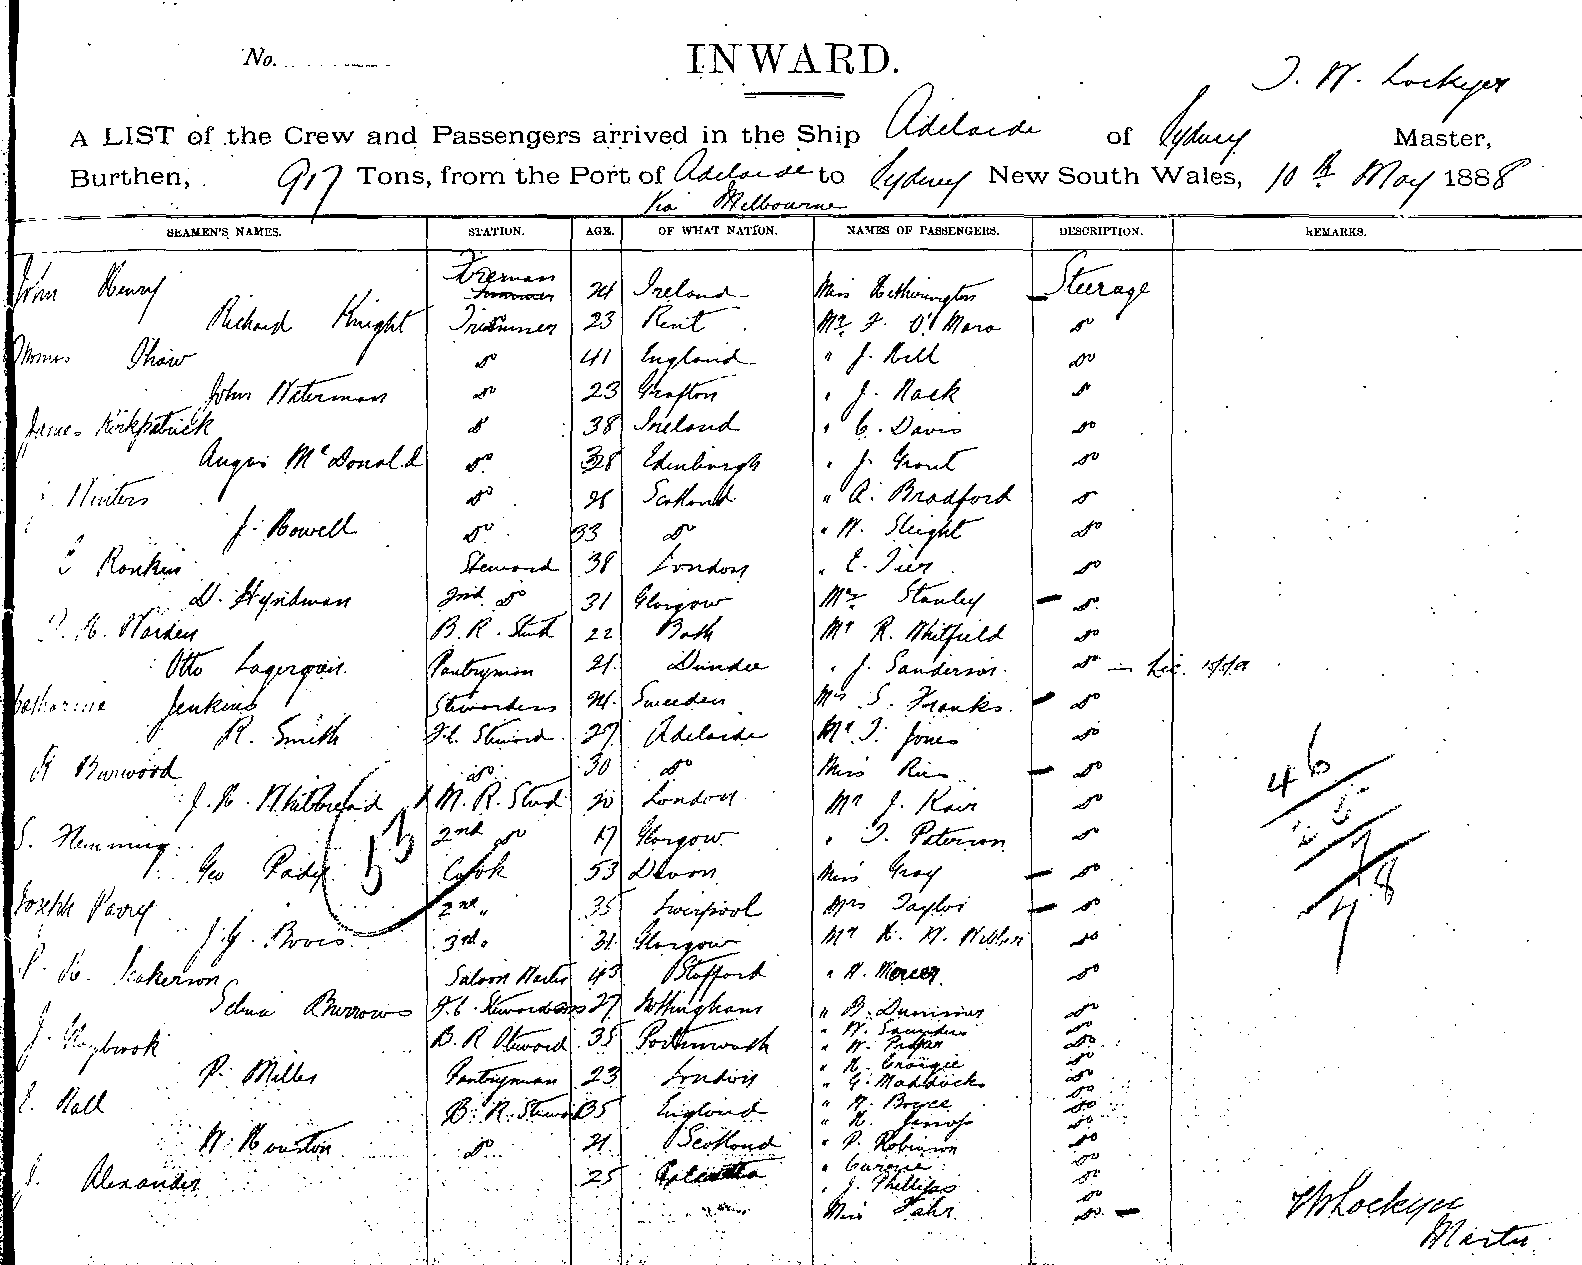 No.
INWARD.
J. W. Lockyer
A LIST of the Crew and Passengers arrived in the Ship Adelaide of Sydney Master,
Burthen, 917 Tons, from the Port of Adelaide to Sydney New South Wales, 10th May 1888
Via Melbourne
SEAMEN'S NAMES. STATION. AGE. OF WHAT NATION. NAMES OF PASSENGERS. DESCRIPTION. REMARKS.
John Henry Fireman 24 Ireland Miss Hetherington Steerage
Richard Knight Trimmer 23 Kent Mr F. O'Mara do
Thomas Shaw do 41 England " J. Hill do
John Waterman do 23 Grafton " J. Hack do
James Kirkpatrick do 38 Ireland " C. Davis do
Angus McDonald do 38 Edinburgh " J. Grout do
Winters do 26 Scotland " A. Bradford do
J. Bowell do 33 do " W. Sleight do
Rankin Steward 38 London " E. Tier do
D. Hyndman 2nd do 31 Glasgow Mrs Stanley do
H. Warden B. R. Stwd 22 Bath Mr R. Whitfield do
Otto Lagerqvis Pantryman 21 Dundee " J. Sanderson do
Catharine Jenkins Stewardess 24 Sweeden Mrs S. Franks do
R. Smith F.C. Steward 27 Adelaide Mr T. Jones do
H Burwood do 30 do Miss do
J. H. Whitbread M. R. Stwd 20 London Mr J. Kair do
S. Flemming 2nd do 17 Glasgow " T. Paterson do
Geo Pady Cook 53 Devon Miss Gray do
53
46
Joseph Pavey 2nd " 35 Liverpool Mrs Taylor do
78
J. G. Boves 3rd " 31 Glasgow Mr H. W. do
P. H. Saloon Waiter 43 Stafford " H. Mercer do
Selina Burrows F.C. Stewardess 27 Nottingham " B. do
J. Haybrook B. R Steward 35 Portsmouth " W. Saunders do
" W. do
P. Miller Pantryman 23 London " H. Georgie do
" G. Maddocks do
E. Hall B. R. Steward 35 England " H. Boyce do
" H. do
W. Houston do 21 Scotland " P. Robinson do
J. Alexander 25 " do
" J. Phillips do
Miss Fahr do
W Lockyer
Master